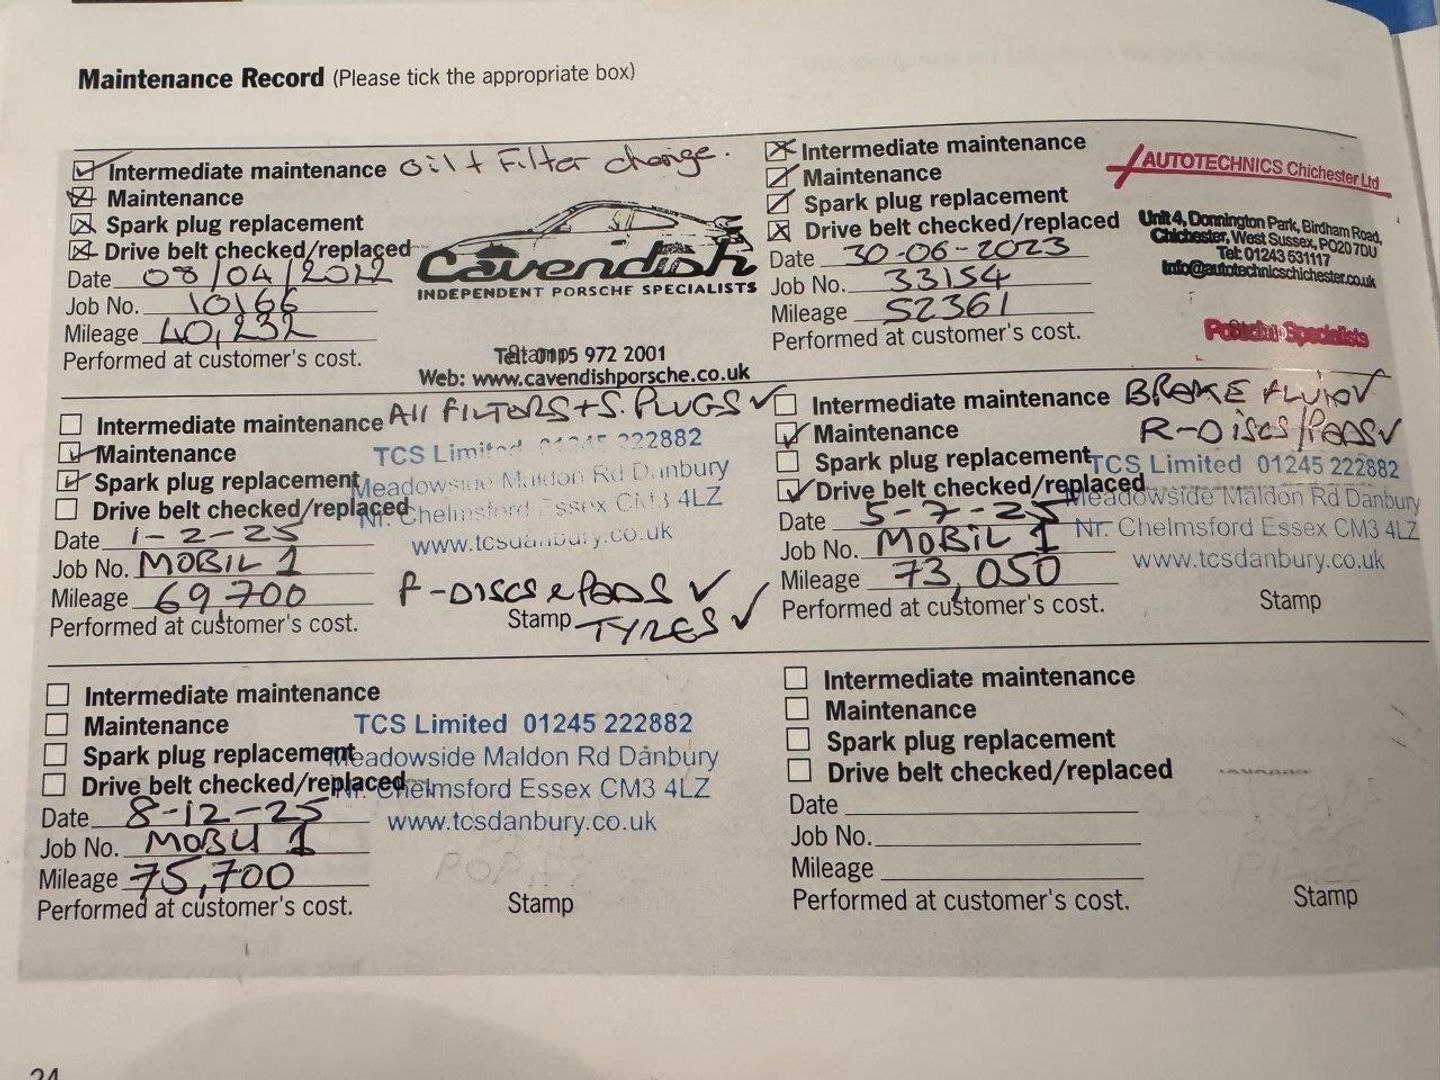 Maintenance Record (Please tick the appropriate box)
Intermediate maintenance Oil + Filter change.
Maintenance
Spark plug replacement
Drive belt checked/replaced
Date 08/04/2022
Job No. 10166
Mileage 40,232
Performed at customer's cost.
Cavendish
INDEPENDENT PORSCHE SPECIALISTS
Stamp
Tel: 0115 972 2001
Web: www.cavendishporsche.co.uk
Intermediate maintenance
Maintenance
Spark plug replacement
Drive belt checked/replaced
Date 30-06-2023
Job No. 33154
Mileage 52361
Performed at customer's cost.
AUTOTECHNICS Chichester Ltd
Unit 4, Donnington Park, Birdham Road,
Chichester, West Sussex, PO20 7DU
Tel: 01243 531117
info@autotechnicschichester.co.uk
Specialists
Intermediate maintenance All FILTERS + S. PLUGS ✓
Maintenance
Spark plug replacement
Drive belt checked/replaced
Date 1-2-25
Job No. MOBIL 1
Mileage 69,700
Performed at customer's cost.
TCS Limited 01245 222882
Meadowside Maldon Rd Danbury
Nr. Chelmsford Essex CM3 4LZ
www.tcsdanbury.co.uk
F-DISCS & PADS ✓
Stamp TYRES ✓
Intermediate maintenance BRAKE FLUID ✓
Maintenance R-DISCS/PADS ✓
Spark plug replacement
Drive belt checked/replaced
Date 5-7-25
Job No. MOBIL 1
Mileage 73,050
Performed at customer's cost.
TCS Limited 01245 222882
Meadowside Maldon Rd Danbury
Nr. Chelmsford Essex CM3 4LZ
www.tcsdanbury.co.uk
Stamp
Intermediate maintenance
Maintenance
Spark plug replacement
Drive belt checked/replaced
Date 8-12-25
Job No. MOBIL 1
Mileage 75,700
Performed at customer's cost.
TCS Limited 01245 222882
Meadowside Maldon Rd Danbury
Nr. Chelmsford Essex CM3 4LZ
www.tcsdanbury.co.uk
Stamp
Intermediate maintenance
Maintenance
Spark plug replacement
Drive belt checked/replaced
Date
Job No.
Mileage
Performed at customer's cost.
Stamp
24